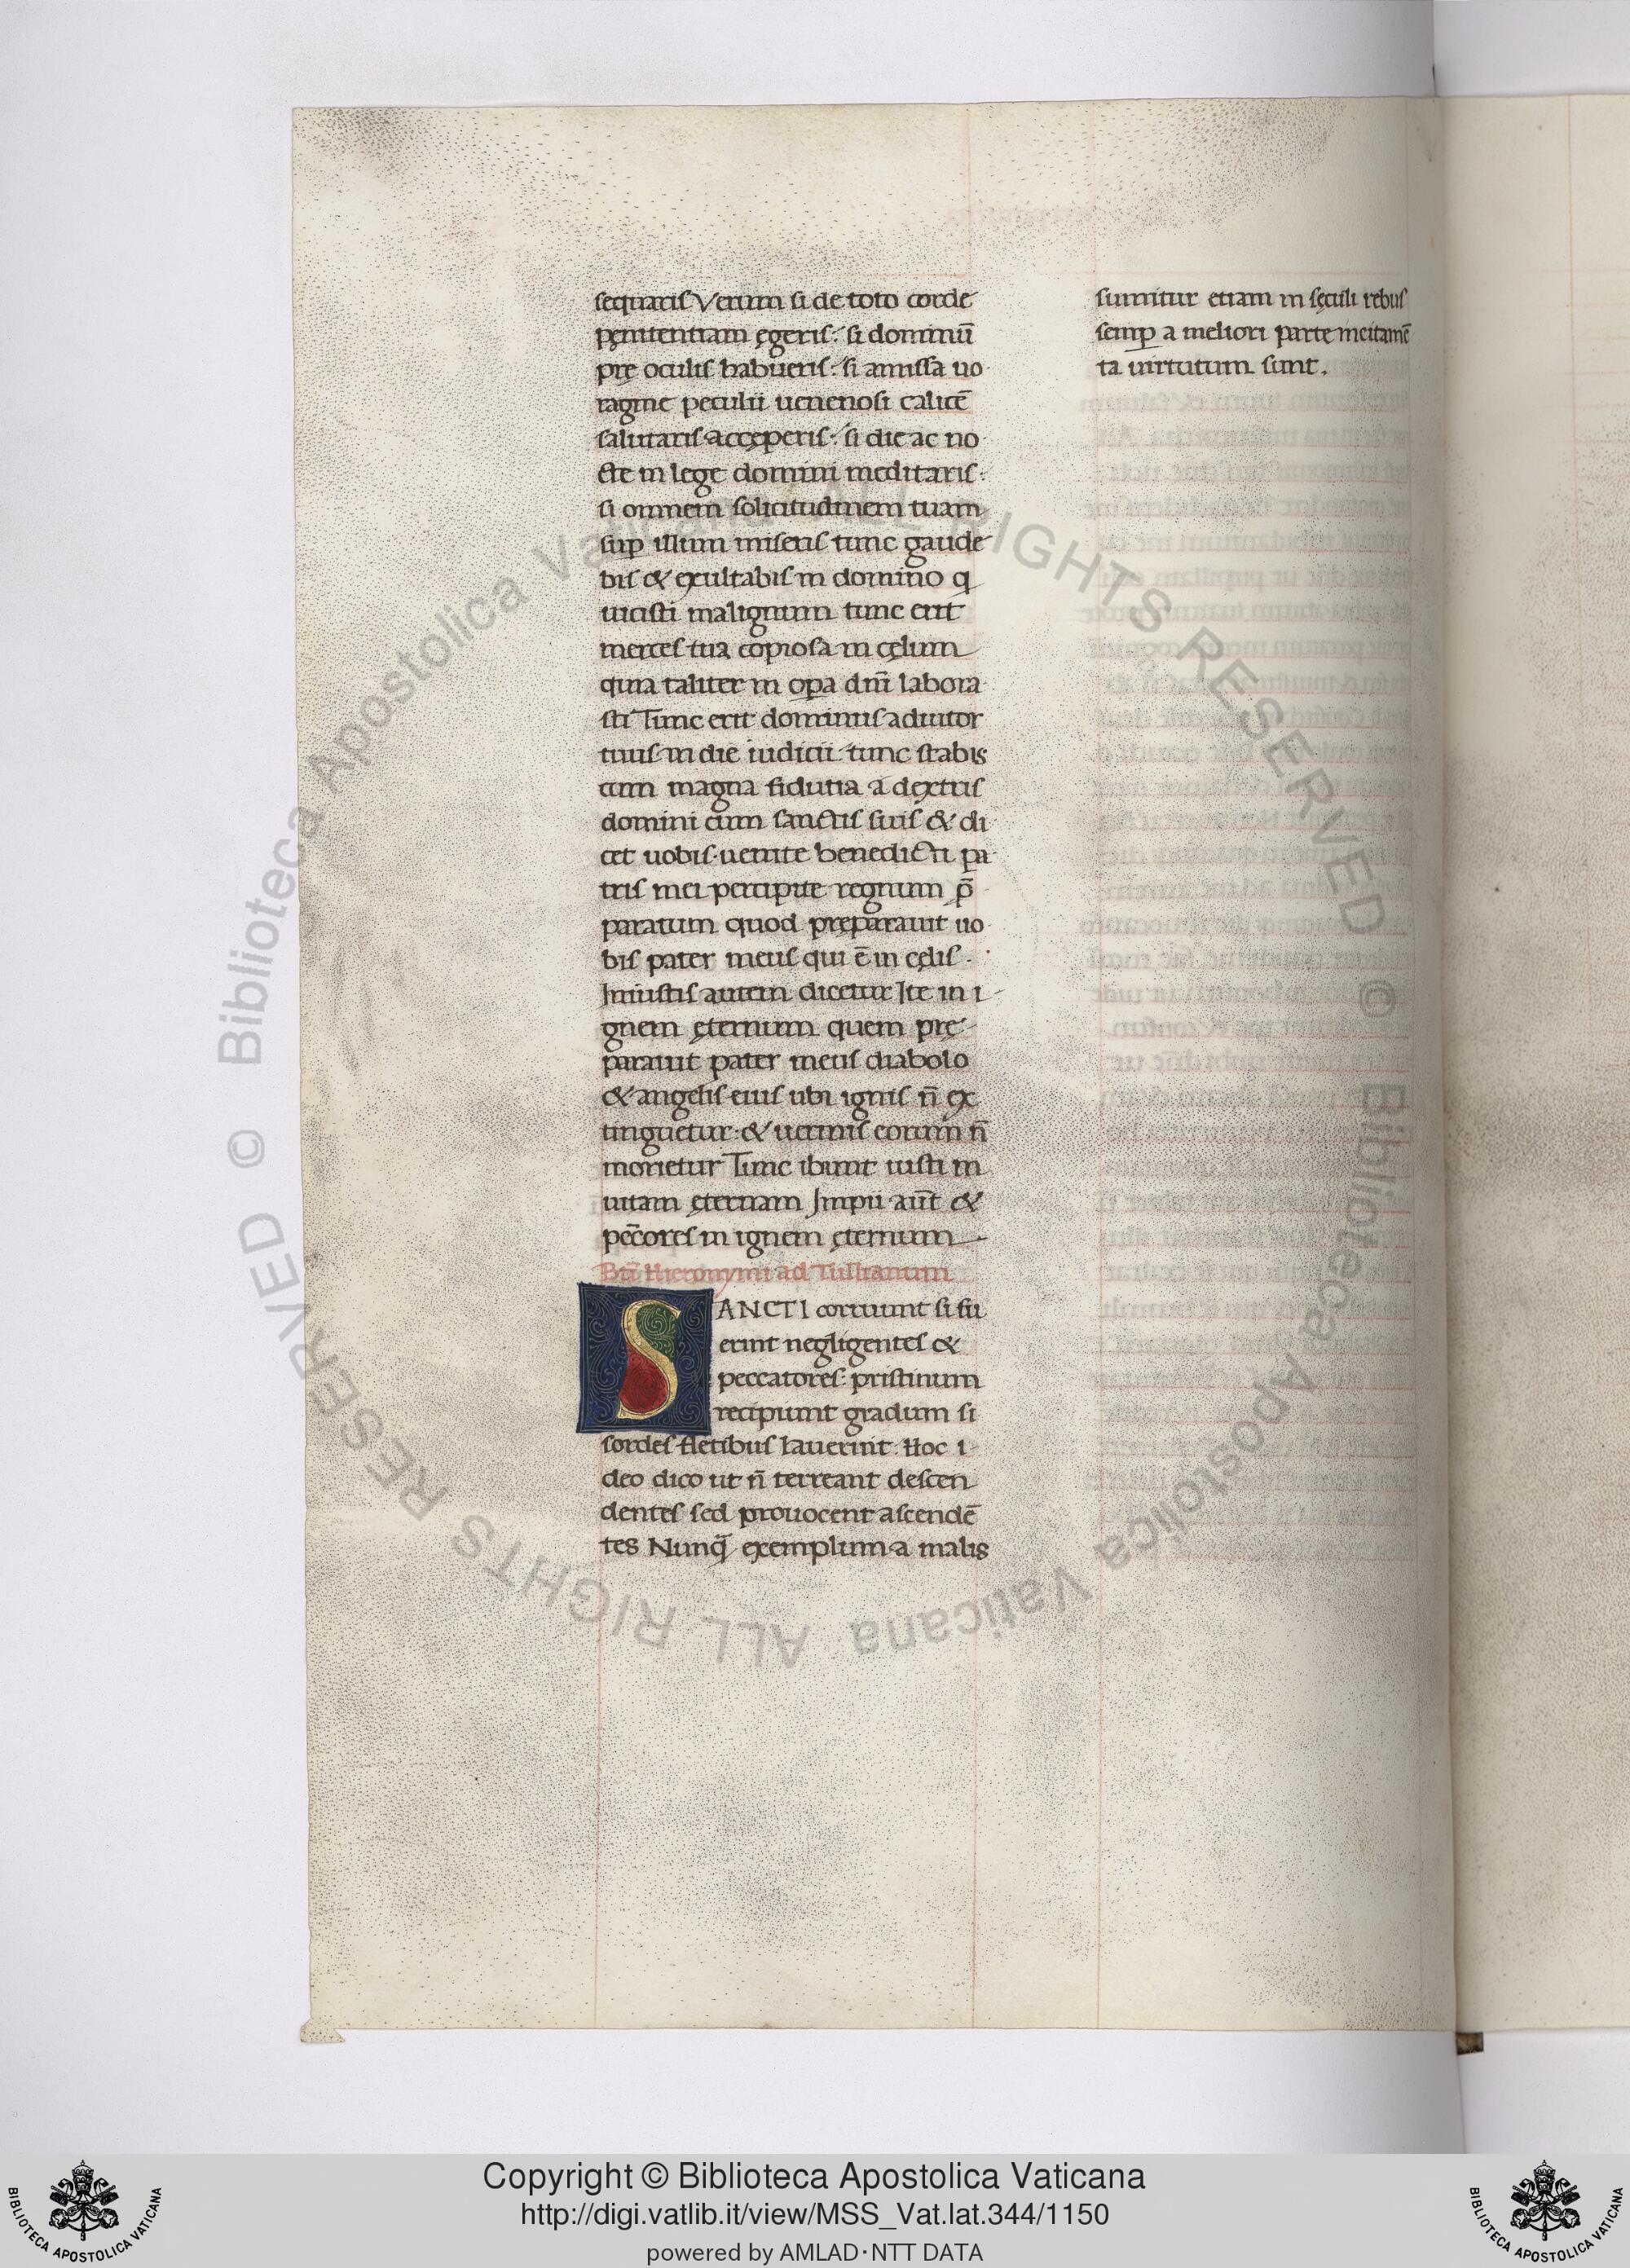 sequaris Verum si de toto corde
pęnitentiam ęgeris: si dominū
prę oculis habueris: si amissa uo
ragine peculii uenenosi calicē
salutaris accęperis: si die ac no
cte in lege domini meditaris:
si omnem solicitudinem tuam
sup̱ illum miseris tunc gaude
bis & exultabis in domino q̱
uicisti malignum tunc erit
merces tua copiosa in cęlum
quia taliter in op̱a dn̄i labora
sti Tunc erit dominus adiutor
tuus in die iudicii tunc stabis
cum magna fidutia a dextris
domini cum sanctis suis & di
cet uobis uenite benedicti pa
tris mei percipite regnum p̄
paratum quod pręparauit uo
bis pater meus qui ē in cęlis.
Iniustis autem dicetur Ite in i
gnem ęternum quem prę
parauit pater meus diabolo
& angelis eius ubi ignis n̄ ex
tinguetur & uermis eorum n̄
morietur Tunc ibunt iusti in
uitam ęternam Impii aūt &
pēcores in ignem ęternum
Bt̄i Hieronymi ad Iulianum
SANCTI corruunt si fu
erint negligentes &
peccatores: pristinum
recipiunt gradum si
sordes fletibus lauerint. Hoc i
deo dico ut n̄ terreant descen
dentes sed prouocent ascendē
tes Nunq̄ exemplum a malis
sumitur etiam in sęculi rebus
semp̱ a meliori parte incitamē
ta uirtutum sunt.
© Biblioteca Apostolica Vaticana ALL RIGHTS RESERVED © Biblioteca Apostolica Vaticana ALL RIGHTS RESERVED
Copyright © Biblioteca Apostolica Vaticana
http://digi.vatlib.it/view/MSS_Vat.lat.344/1150
powered by AMLAD·NTT DATA
BIBLIOTECA APOSTOLICA VATICANA
BIBLIOTECA APOSTOLICA VATICANA